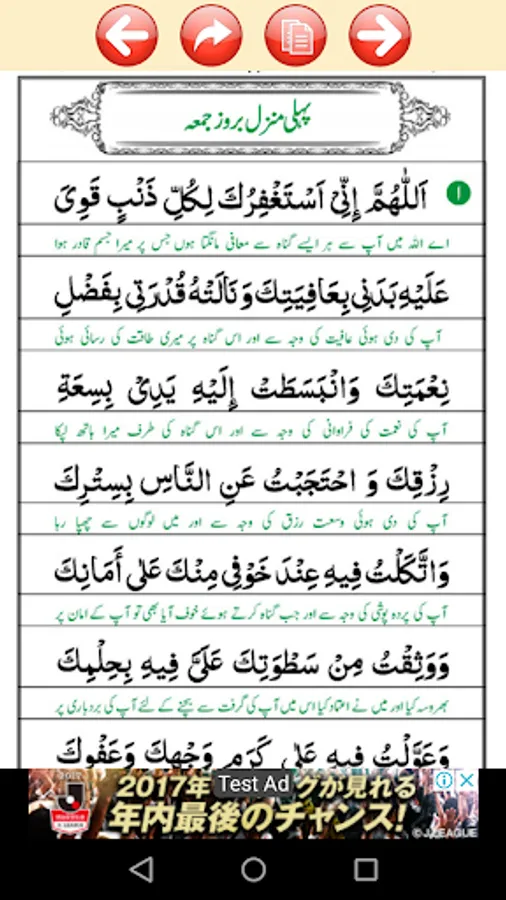 پہلی منزل بروز جمعہ
۱ اَللّٰهُمَّ اِنِّیْ اَسْتَغْفِرُكَ لِكُلِّ ذَنْۢبٍ قَوِیَ
اے اللہ میں آپ سے ہر ایسے گناہ سے معافی مانگتا ہوں جس پر میرا جسم قادر ہوا
عَلَيْهِ بَدَنِیْ بِعَافِيَتِكَ وَنَالَتْهُ قُدْرَتِیْ بِفَضْلِ
آپ کی دی ہوئی عافیت کی وجہ سے اور اس گناہ پر میری طاقت کی رسائی ہوئی
نِعْمَتِكَ وَانْبَسَطَتْ اِلَيْهِ يَدِیْ بِسِعَةِ
آپ کی نعمت کی فراوانی کی وجہ سے اور اس گناہ کی طرف میرا ہاتھ لپکا
رِزْقِكَ وَ احْتَجَبْتُ عَنِ النَّاسِ بِسِتْرِكَ
آپ کی دی ہوئی وسعت رزق کی وجہ سے اور میں لوگوں سے چھپا رہا
وَاتَّكَلْتُ فِيهِ عِنْدَ خَوْفِیْ مِنْكَ عَلٰی أَمَانِكَ
آپ کی پردہ پوشی کی وجہ سے اور جب گناہ کرتے ہوئے خوف آیا بھی تو آپ کے امان پر
وَوَثِقْتُ مِنْ سَطْوَتِكَ عَلَیَّ فِيهِ بِحِلْمِكَ
بھروسہ کیا اور میں نے اعتماد کیا اس میں آپ کی گرفت سے بچنے کے لئے آپ کی بردباری پر
وَعَوَّلْتُ فِيهِ عَلٰی كَرَمِ وَجْهِكَ وَعَفْوِكَ
2017年 Test Ad グが見れる
年内最後のチャンス!
©J.LEAGUE